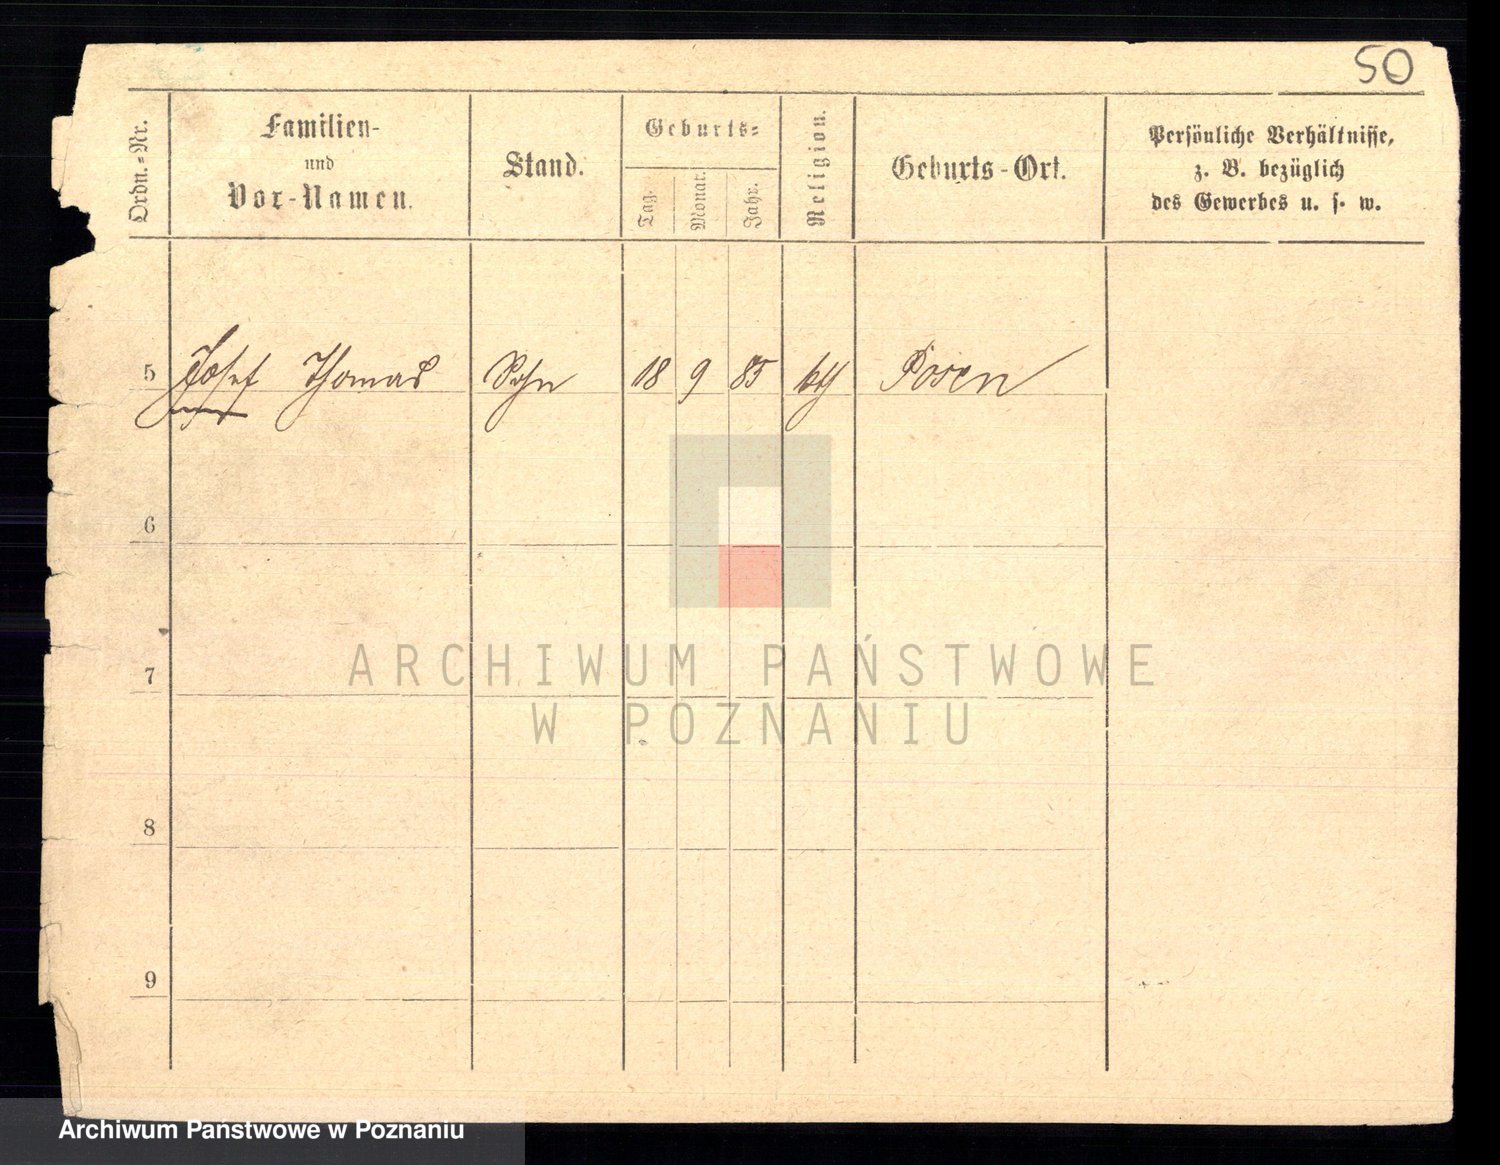 50
Ordn.=Nr.
Familien-
und
Vor-Namen.
Stand.
Geburts=
Tag.
Monat.
Jahr.
Religion.
Geburts-Ort.
Persönliche Verhältnisse,
z. B. bezüglich
des Gewerbes u. s. w.
5 Josef Thomas Sohn 18 9 85 kth Posen
6
7
8
9
ARCHIWUM PAŃSTWOWE
W POZNANIU
Archiwum Państwowe w Poznaniu